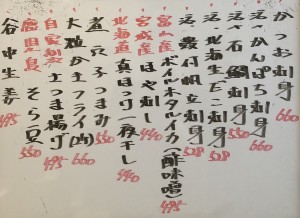 かつお刺身 660
活〆かんぱち刺身 660
活〆石鯛刺身 550
活〆北海生だこ刺身 528
活〆殻付帆立刺身 528
富山産ボイルホタルイカ(酢味噌) 495
宮城産ほや刺し 440
北海道真ほっけ一夜干し 440
煮穴子つまみ 550
大粒かきフライ(内) 660
自家製さつま揚げ 495
鹿児島そら豆 550
谷中生姜 495